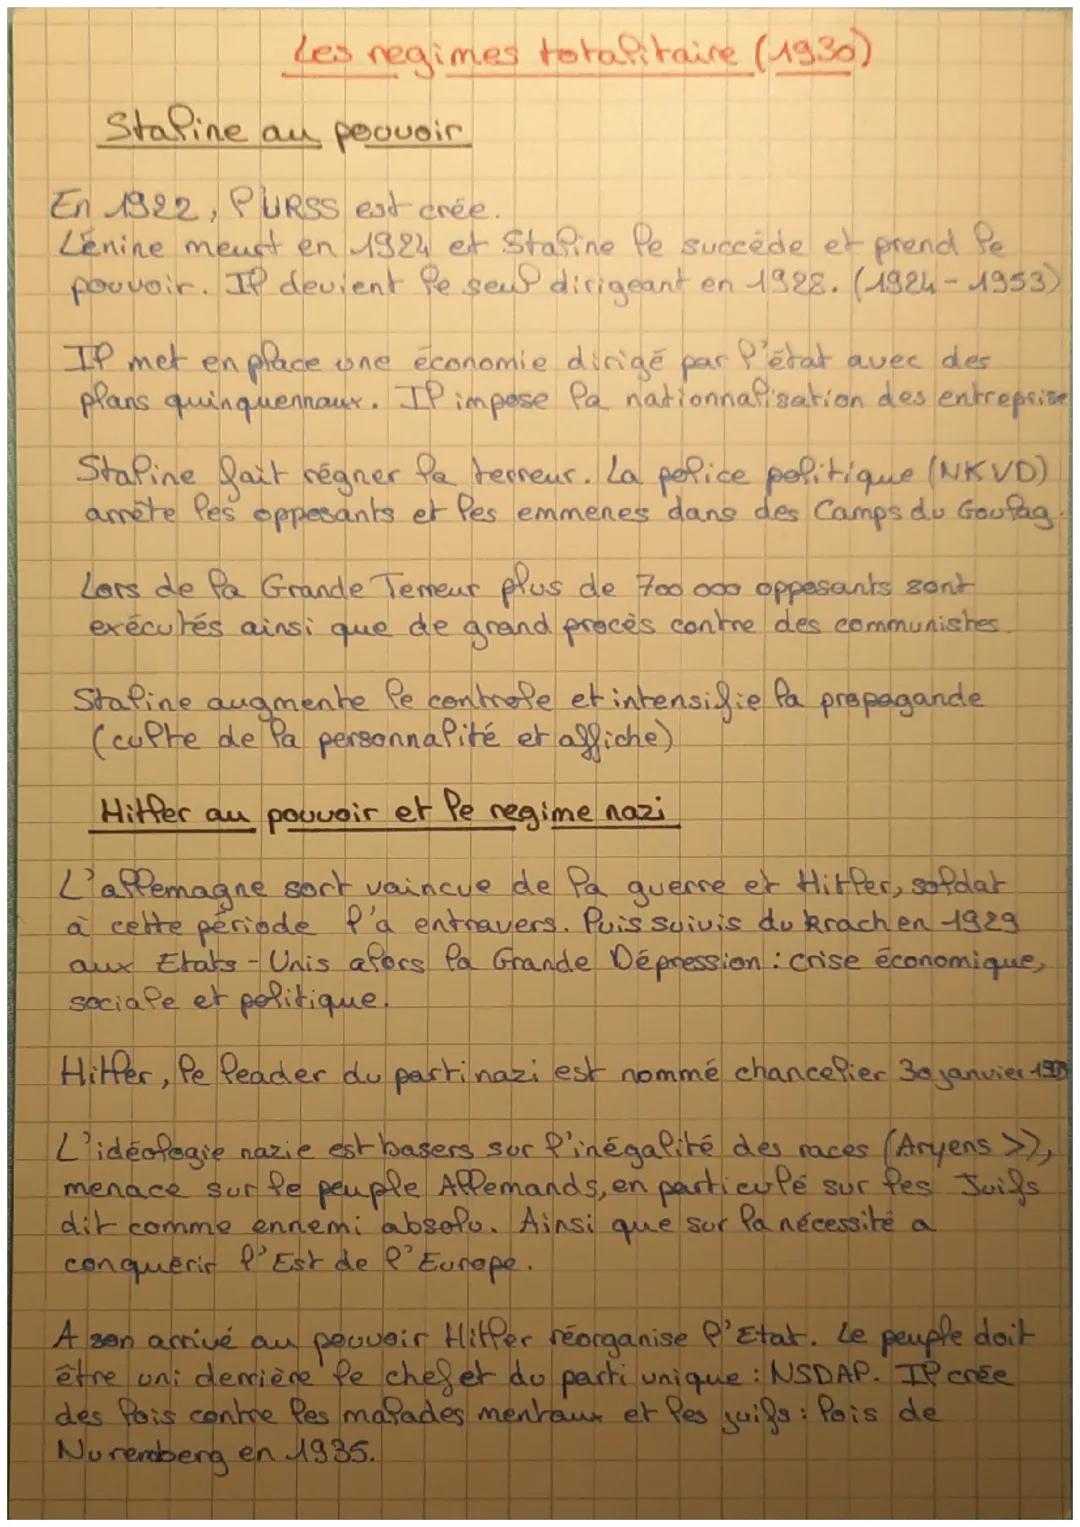 Les regimes totalitaire (1930)
Staline au pouvoir
En 1922, l'URSS est crée.
Lénine meurt en 1924 et Staline le succéde et prend le
pouvoir. Il devient le seul dirigeant en 1928. (1924-1953)
Il met en place une économie dirigé par l'état avec des
plans quinquennaux. Il impose la nationnalisation des entreprise
Staline fait régner la terreur. La police politique (NKVD)
arrête les opposants et les emmenes dans des Camps du Goulag.
Lors de la Grande Terreur plus de 700 000 opposants sont
exécutés ainsi que de grand procès contre des communistes.
Staline augmente le controle et intensifie la propagande
(culte de la personnalité et affiche)
Hitler au pouvoir et le regime nazi
L'allemagne sort vaincue de la guerre et Hitler, soldat
à cette période l'a entravers. Puis suivis du krach en 1929
aux Etats-Unis alors la Grande Dépression : crise économique,
sociale et politique.
Hitler, le leader du parti nazi est nommé chancelier 30 janvier 1933
L'idéologie nazie est basers sur l'inégalité des races (Aryens >),
menace sur le peuple Allemands, en particulé sur les Juifs
dit comme ennemi absolu. Ainsi que sur la nécessité a
conquérir l'Est de l'Europe.
A son arrivé au pouvoir Hitler réorganise l'Etat. Le peuple doit
être uni derrière le chef et du parti unique : NSDAP. Il crée
des lois contre les malades mentaux et les juifs : lois de
Nuremberg en 1935.